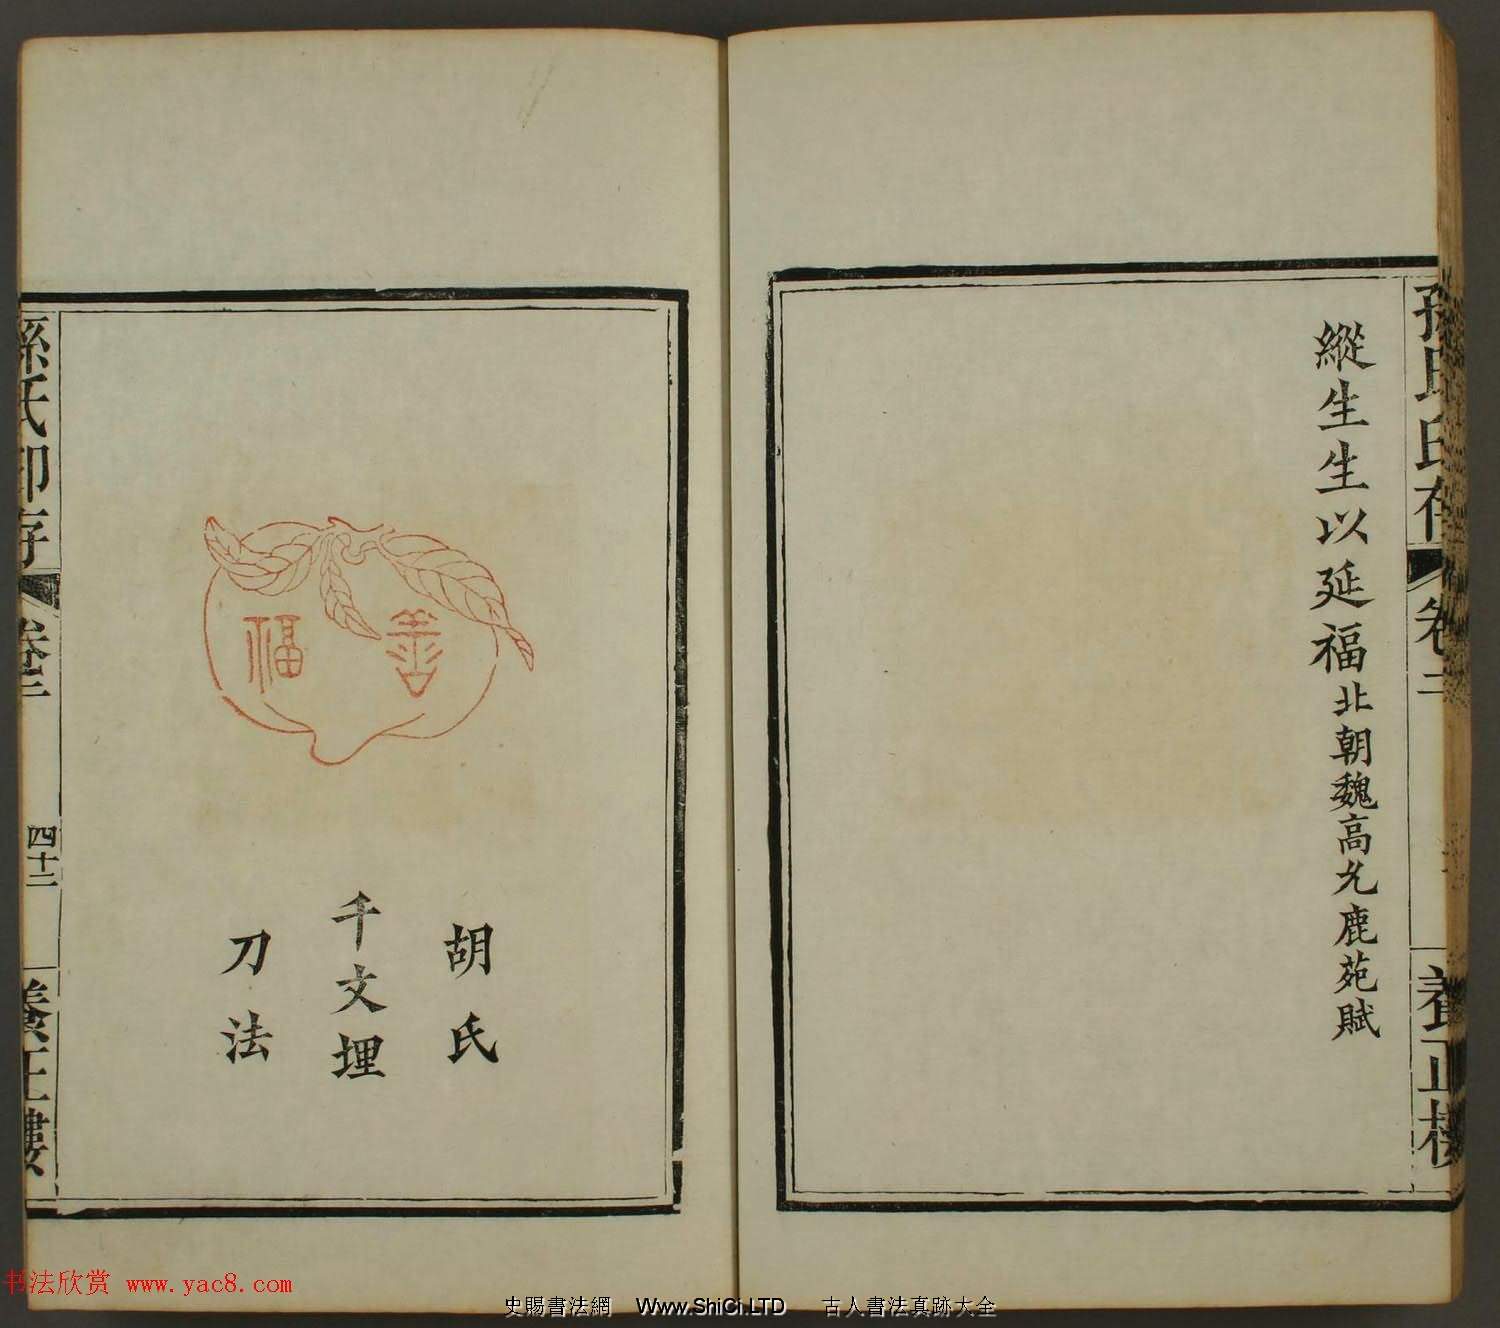 孫氏印存 卷二 養正樓
縱生生以延福北朝魏高允鹿苑賦
善福
胡氏
千文埋
刀法
孫氏印存 卷二 四十二 養正樓
书法欣赏 www.yac8.com
史賜書法網 Www.ShiCi.LTD 古人書法真跡大全